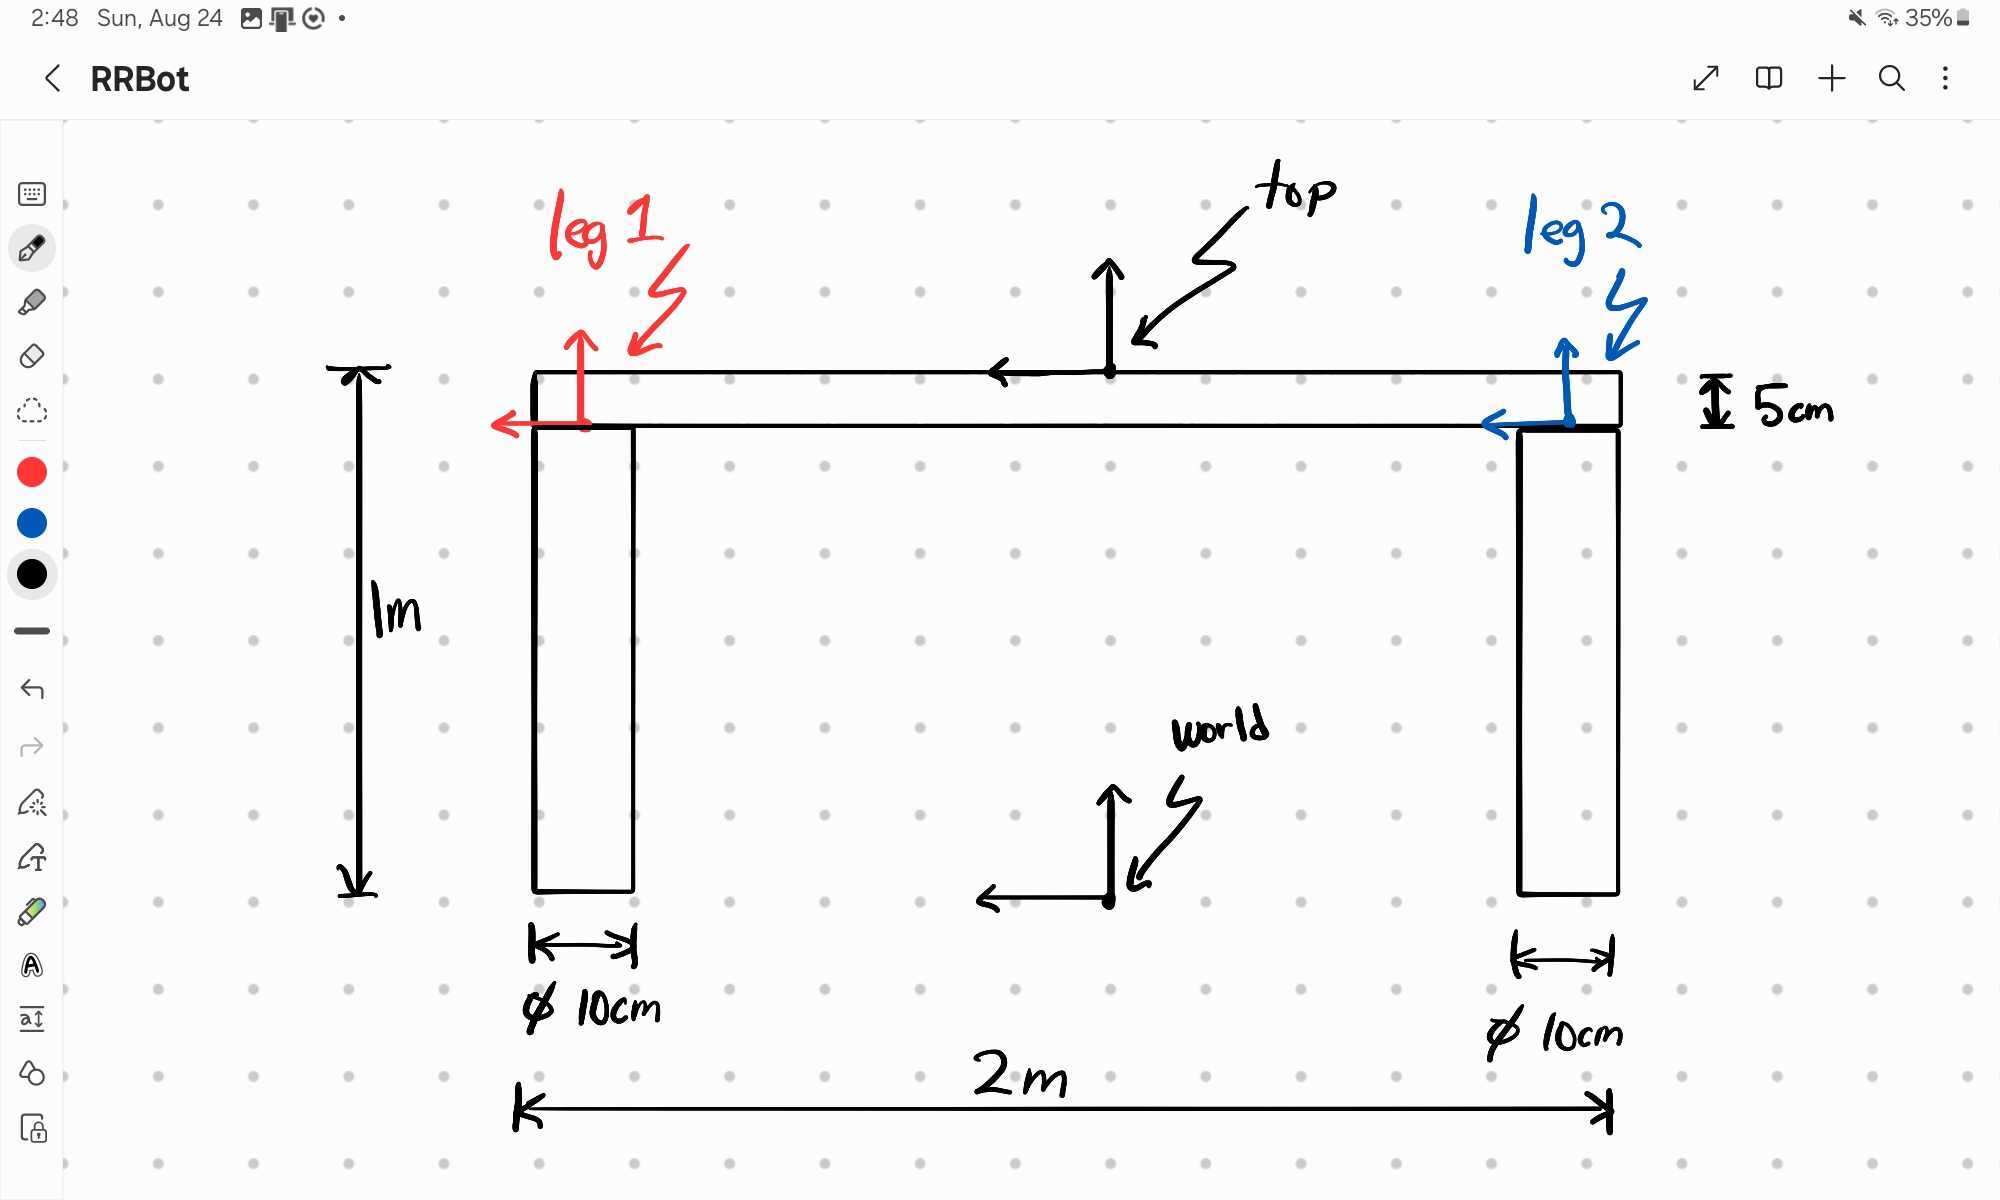 2:48 Sun, Aug 24
35%
RRBot
top
leg 1
leg 2
5cm
1m
world
ø 10cm
ø 10cm
2m